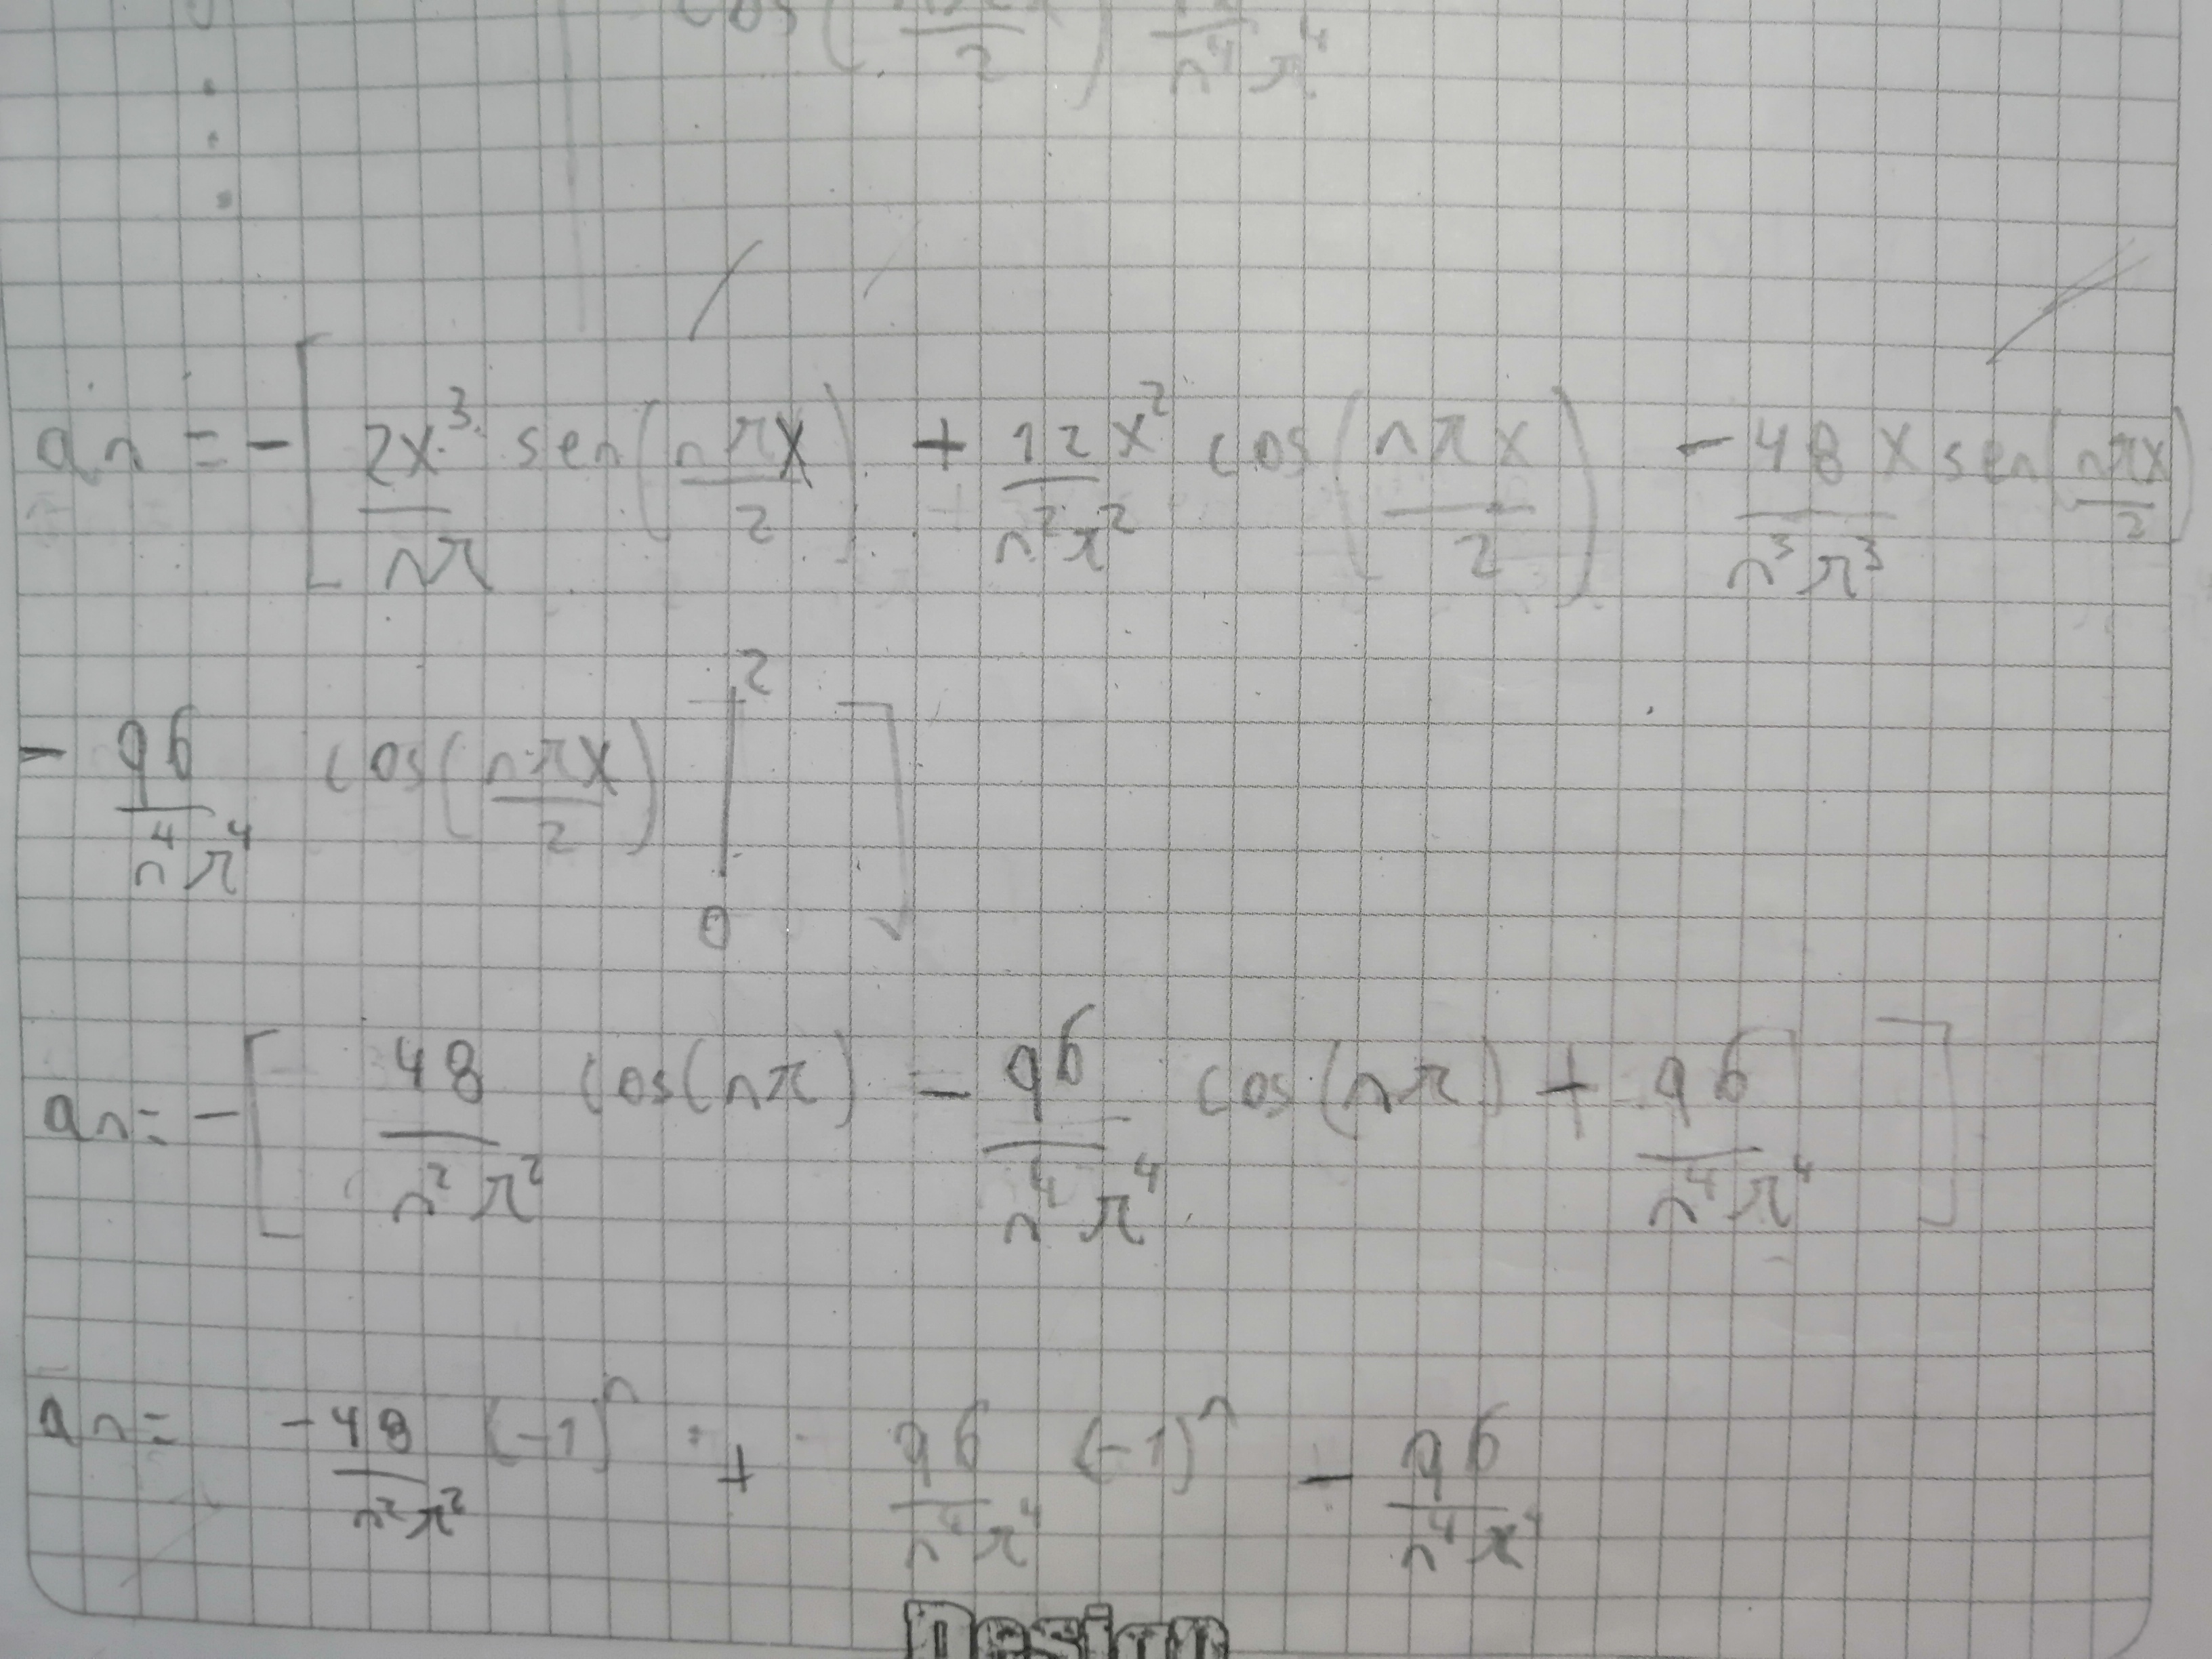 cos( /2) /n⁴π⁴
an = -[ 2x³/nπ sen(nπx/2) + 12x²/n²π² cos(nπx/2) - 48x/n³π³ sen(nπx/2)
- 96/n⁴π⁴ cos(nπx/2) |₀² ]
an = -[ 48/n²π² cos(nπ) - 96/n⁴π⁴ cos(nπ) + 96/n⁴π⁴ ]
an = -48/n²π² (-1)ⁿ + 96/n⁴π⁴ (-1)ⁿ - 96/n⁴π⁴